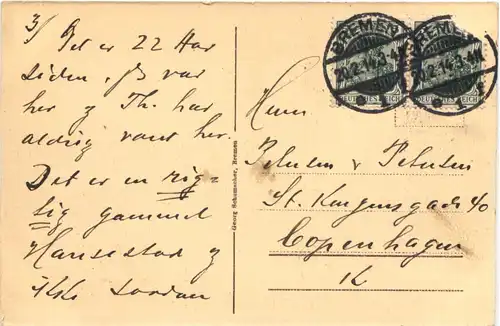 3/
Det er 22 Aar
siden, jeg var
her og Th. har
aldrig vært her.
Det er en rig-
tig gammel
Hansestad og
ikke
Georg Schumacher, Bremen
BREMEN
20.2.14. 3-4N
BREMEN
20.2.14. 3-4N
DEUTSCHES REICH
DEUTSCHES REICH
Herrn
Petersen & Petersen
St. Kongensgade 40
Copenhagen
K